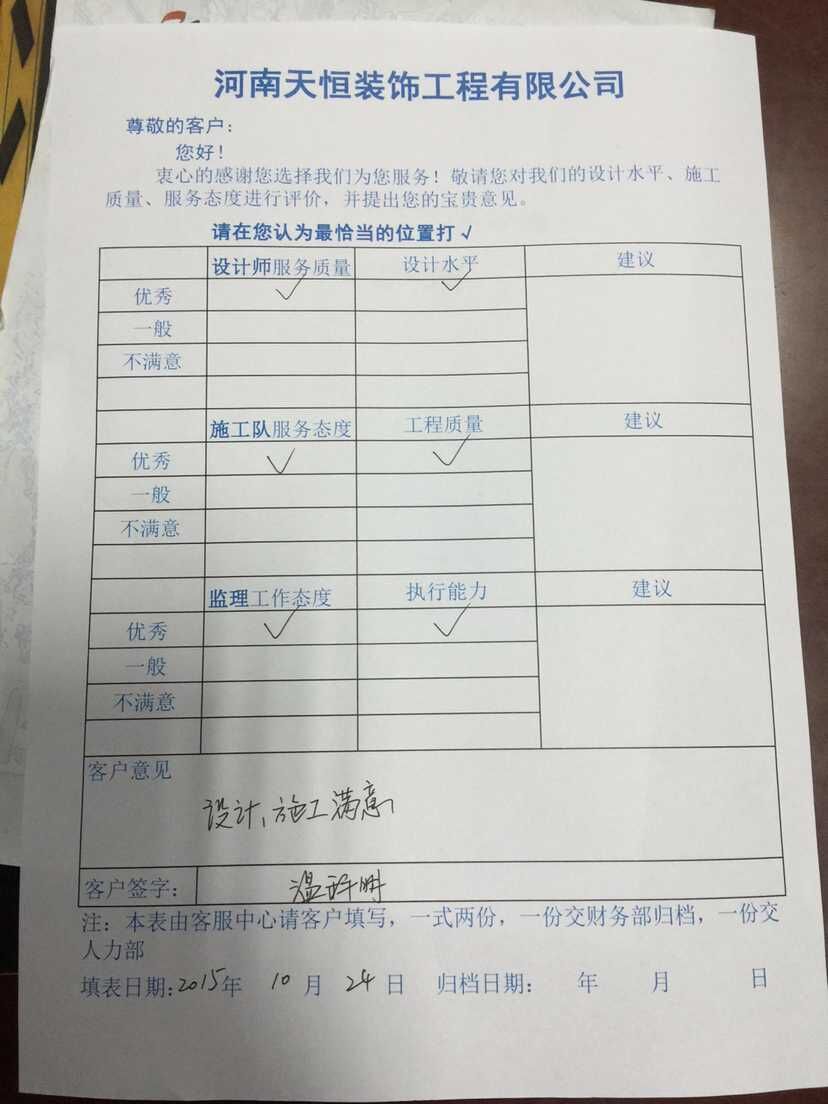 河南天恒装饰工程有限公司
尊敬的客户：
您好！
衷心的感谢您选择我们为您服务！敬请您对我们的设计水平、施工
质量、服务态度进行评价，并提出您的宝贵意见。
请在您认为最恰当的位置打√
设计师服务质量 设计水平 建议
优秀 ✓ ✓
一般
不满意
施工队服务态度 工程质量 建议
优秀 ✓ ✓
一般
不满意
监理工作态度 执行能力 建议
优秀 ✓ ✓
一般
不满意
客户意见
设计、施工满意
客户签字： 温
注：本表由客服中心请客户填写，一式两份，一份交财务部归档，一份交
人力部
填表日期：2015年 10月 24日 归档日期： 年 月 日